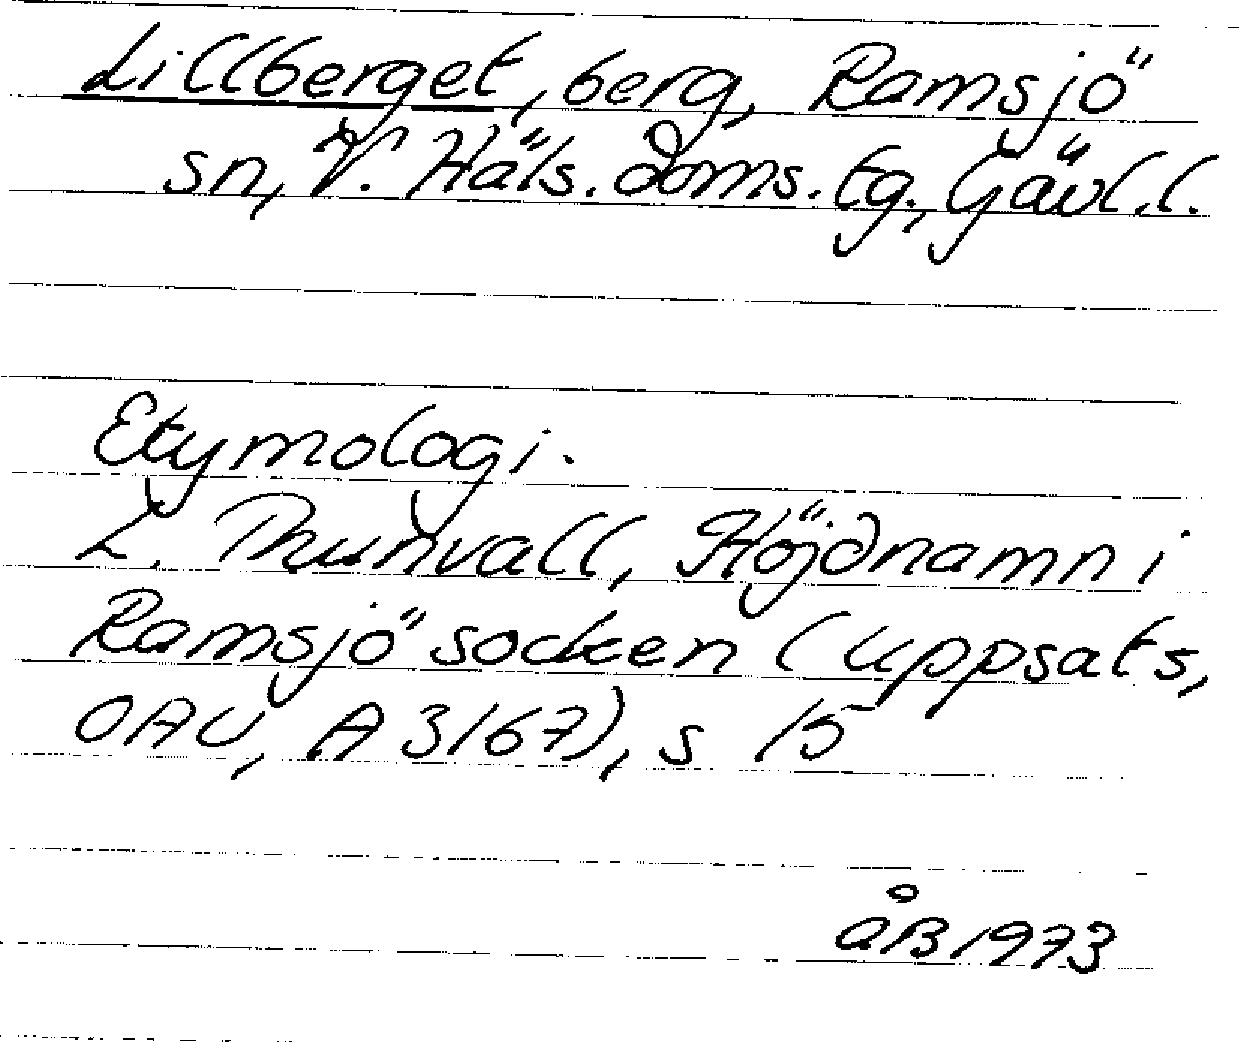 Lillberget, berg, Ramsjö
sn, V. Häls. doms. tg., Gävl.l.
Etymologi.
L. Thunvall, Höjdnamn i
Ramsjö socken (uppsats,
OAU, A 3167), s 15
åB 1973